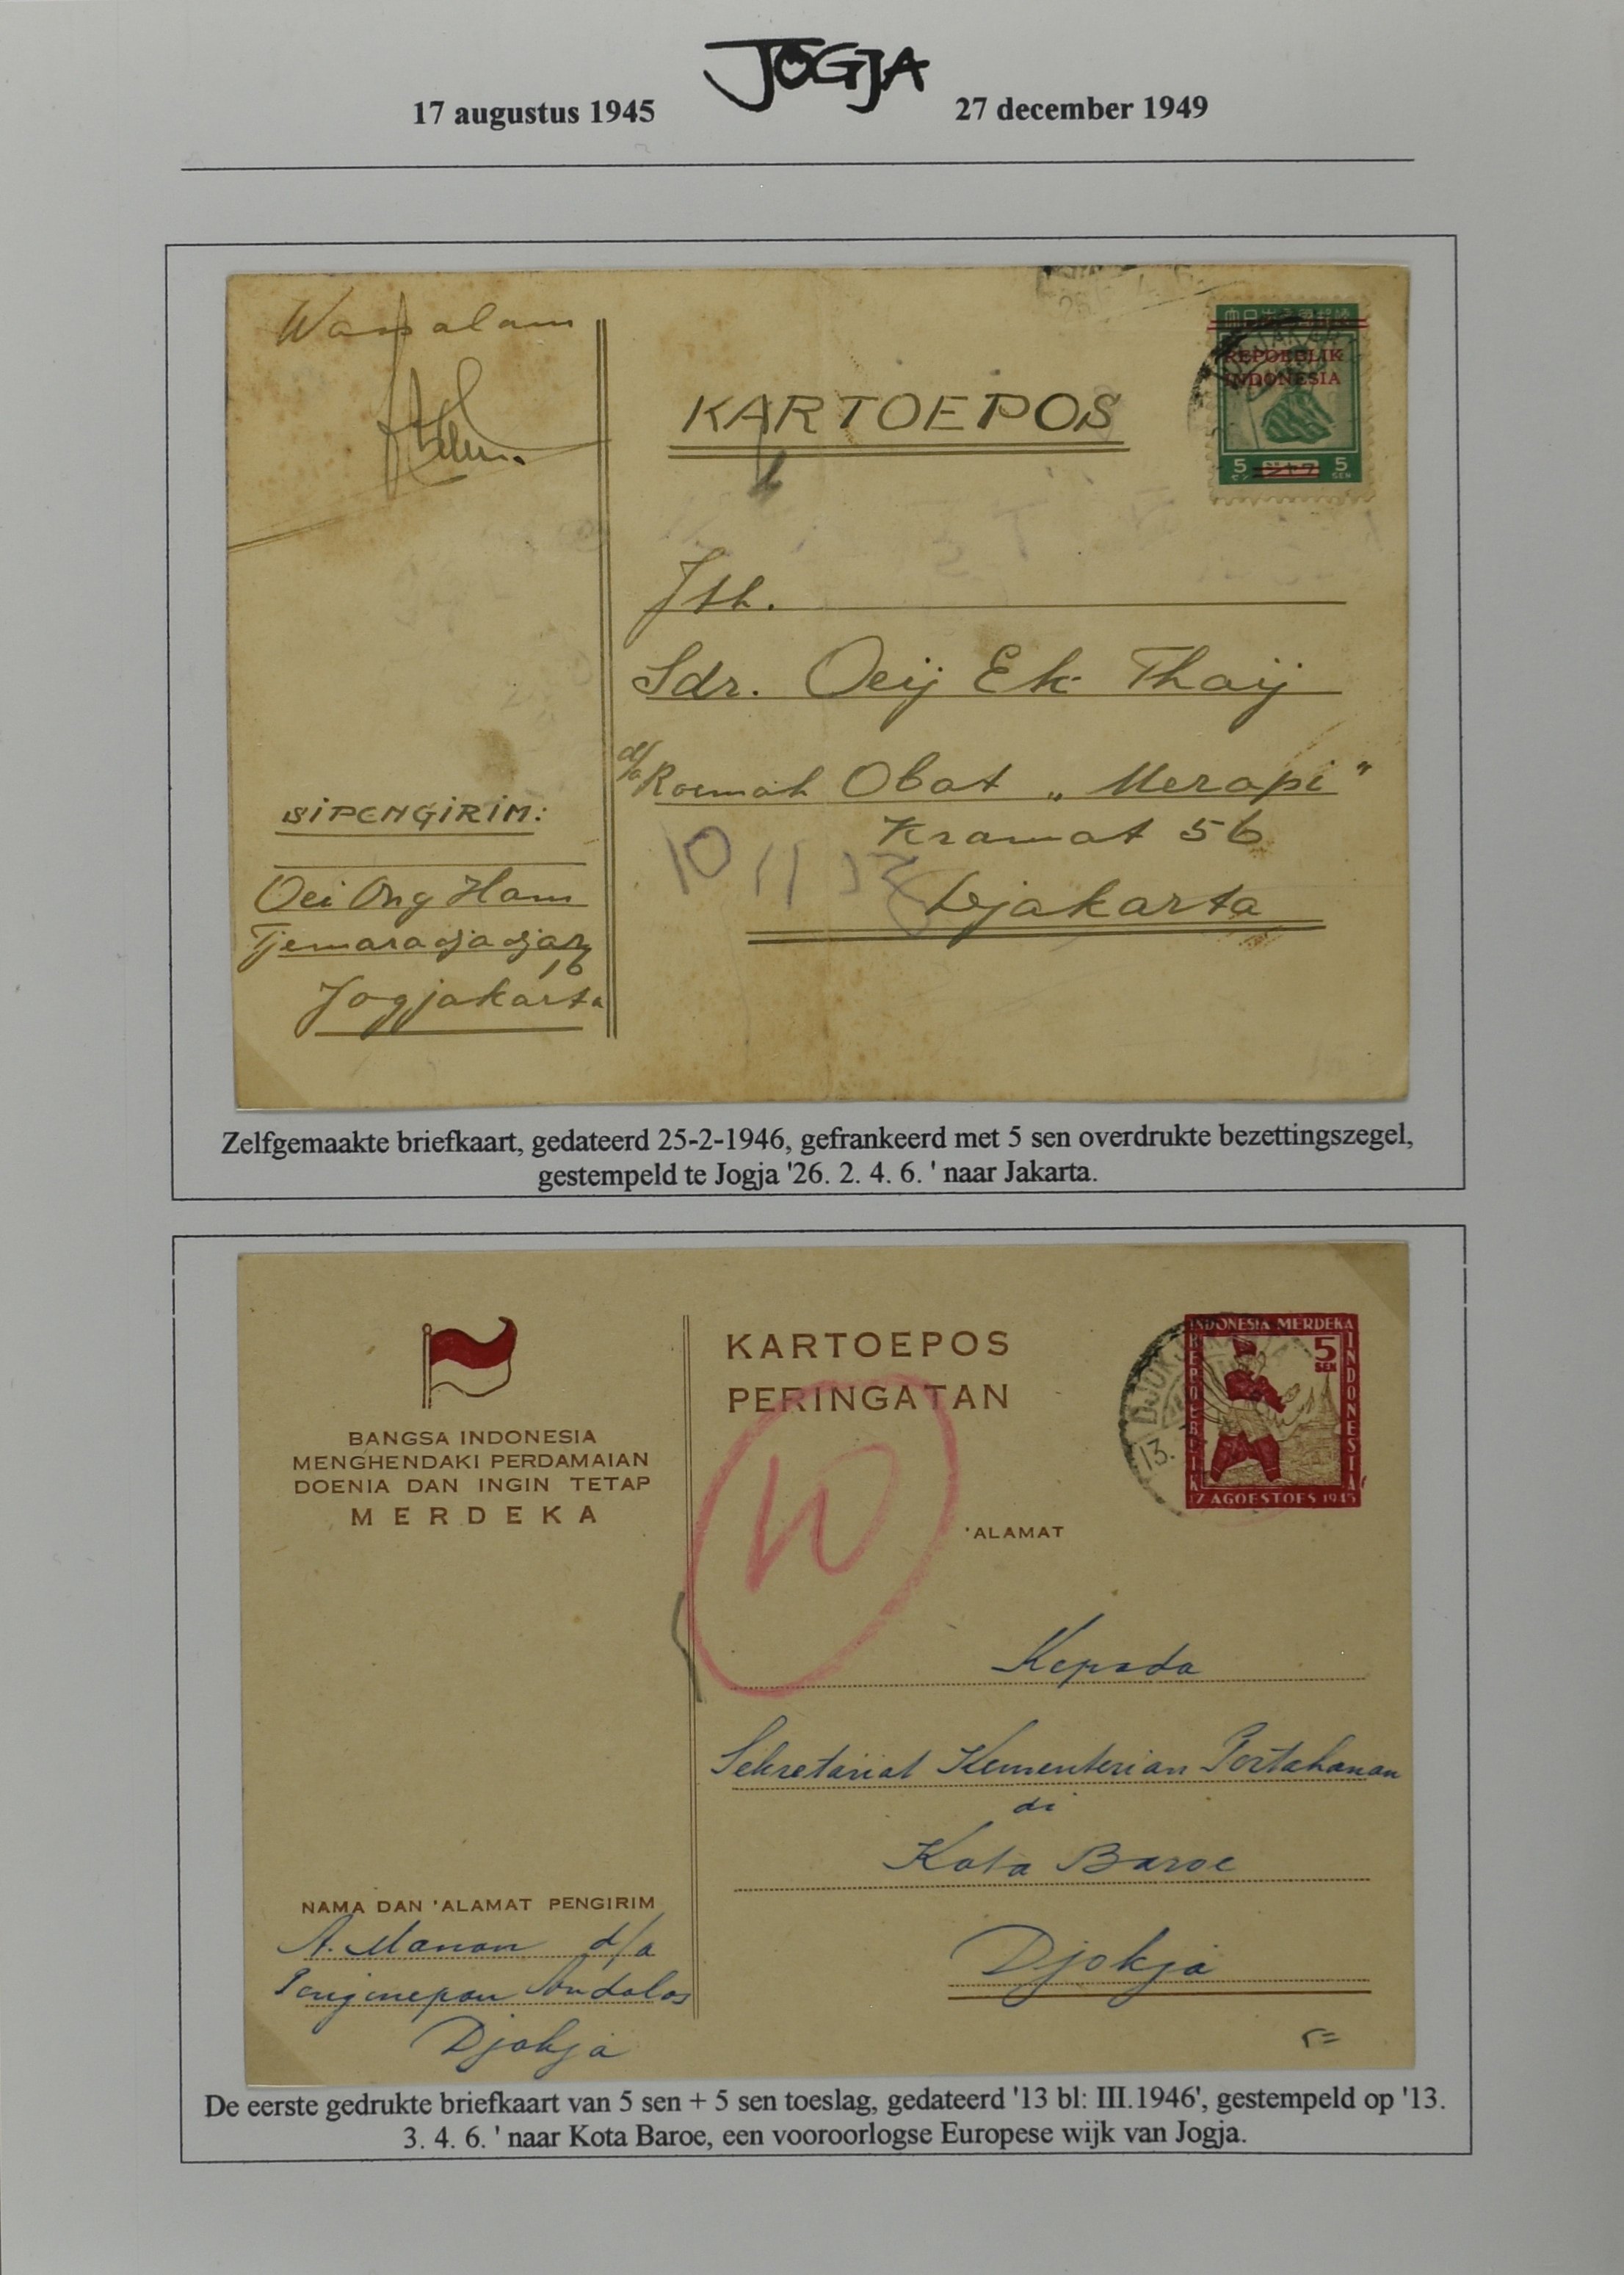 JOGJA
17 augustus 1945
27 december 1949
Wassalam
KARTOEPOS
REPOEBLIK
INDONESIA
5 5
SEN
Jth.
Sdr. Oeij Ek Thaij
d/a Roemah Obat „Merapi"
Kramat 56
Djakarta
SIPENGIRIM:
Oei Ong Ham
Tjemaradjadjar
16
Jogjakarta
Zelfgemaakte briefkaart, gedateerd 25-2-1946, gefrankeerd met 5 sen overdrukte bezettingszegel,
gestempeld te Jogja '26. 2. 4. 6. ' naar Jakarta.
BANGSA INDONESIA
MENGHENDAKI PERDAMAIAN
DOENIA DAN INGIN TETAP
MERDEKA
KARTOEPOS
PERINGATAN
INDONESIA MERDEKA
REPOEBLIK
INDONESIA
5
SEN
17 AGOESTOES 1945
'ALAMAT
Kepada
Sekretariat Kementerian Pertahanan
di
Kota Baroe
Djokja
NAMA DAN 'ALAMAT PENGIRIM
A. Manan d/a
Penginepan Andalas
Djokja
De eerste gedrukte briefkaart van 5 sen + 5 sen toeslag, gedateerd '13 bl: III.1946', gestempeld op '13.
3. 4. 6. ' naar Kota Baroe, een vooroorlogse Europese wijk van Jogja.